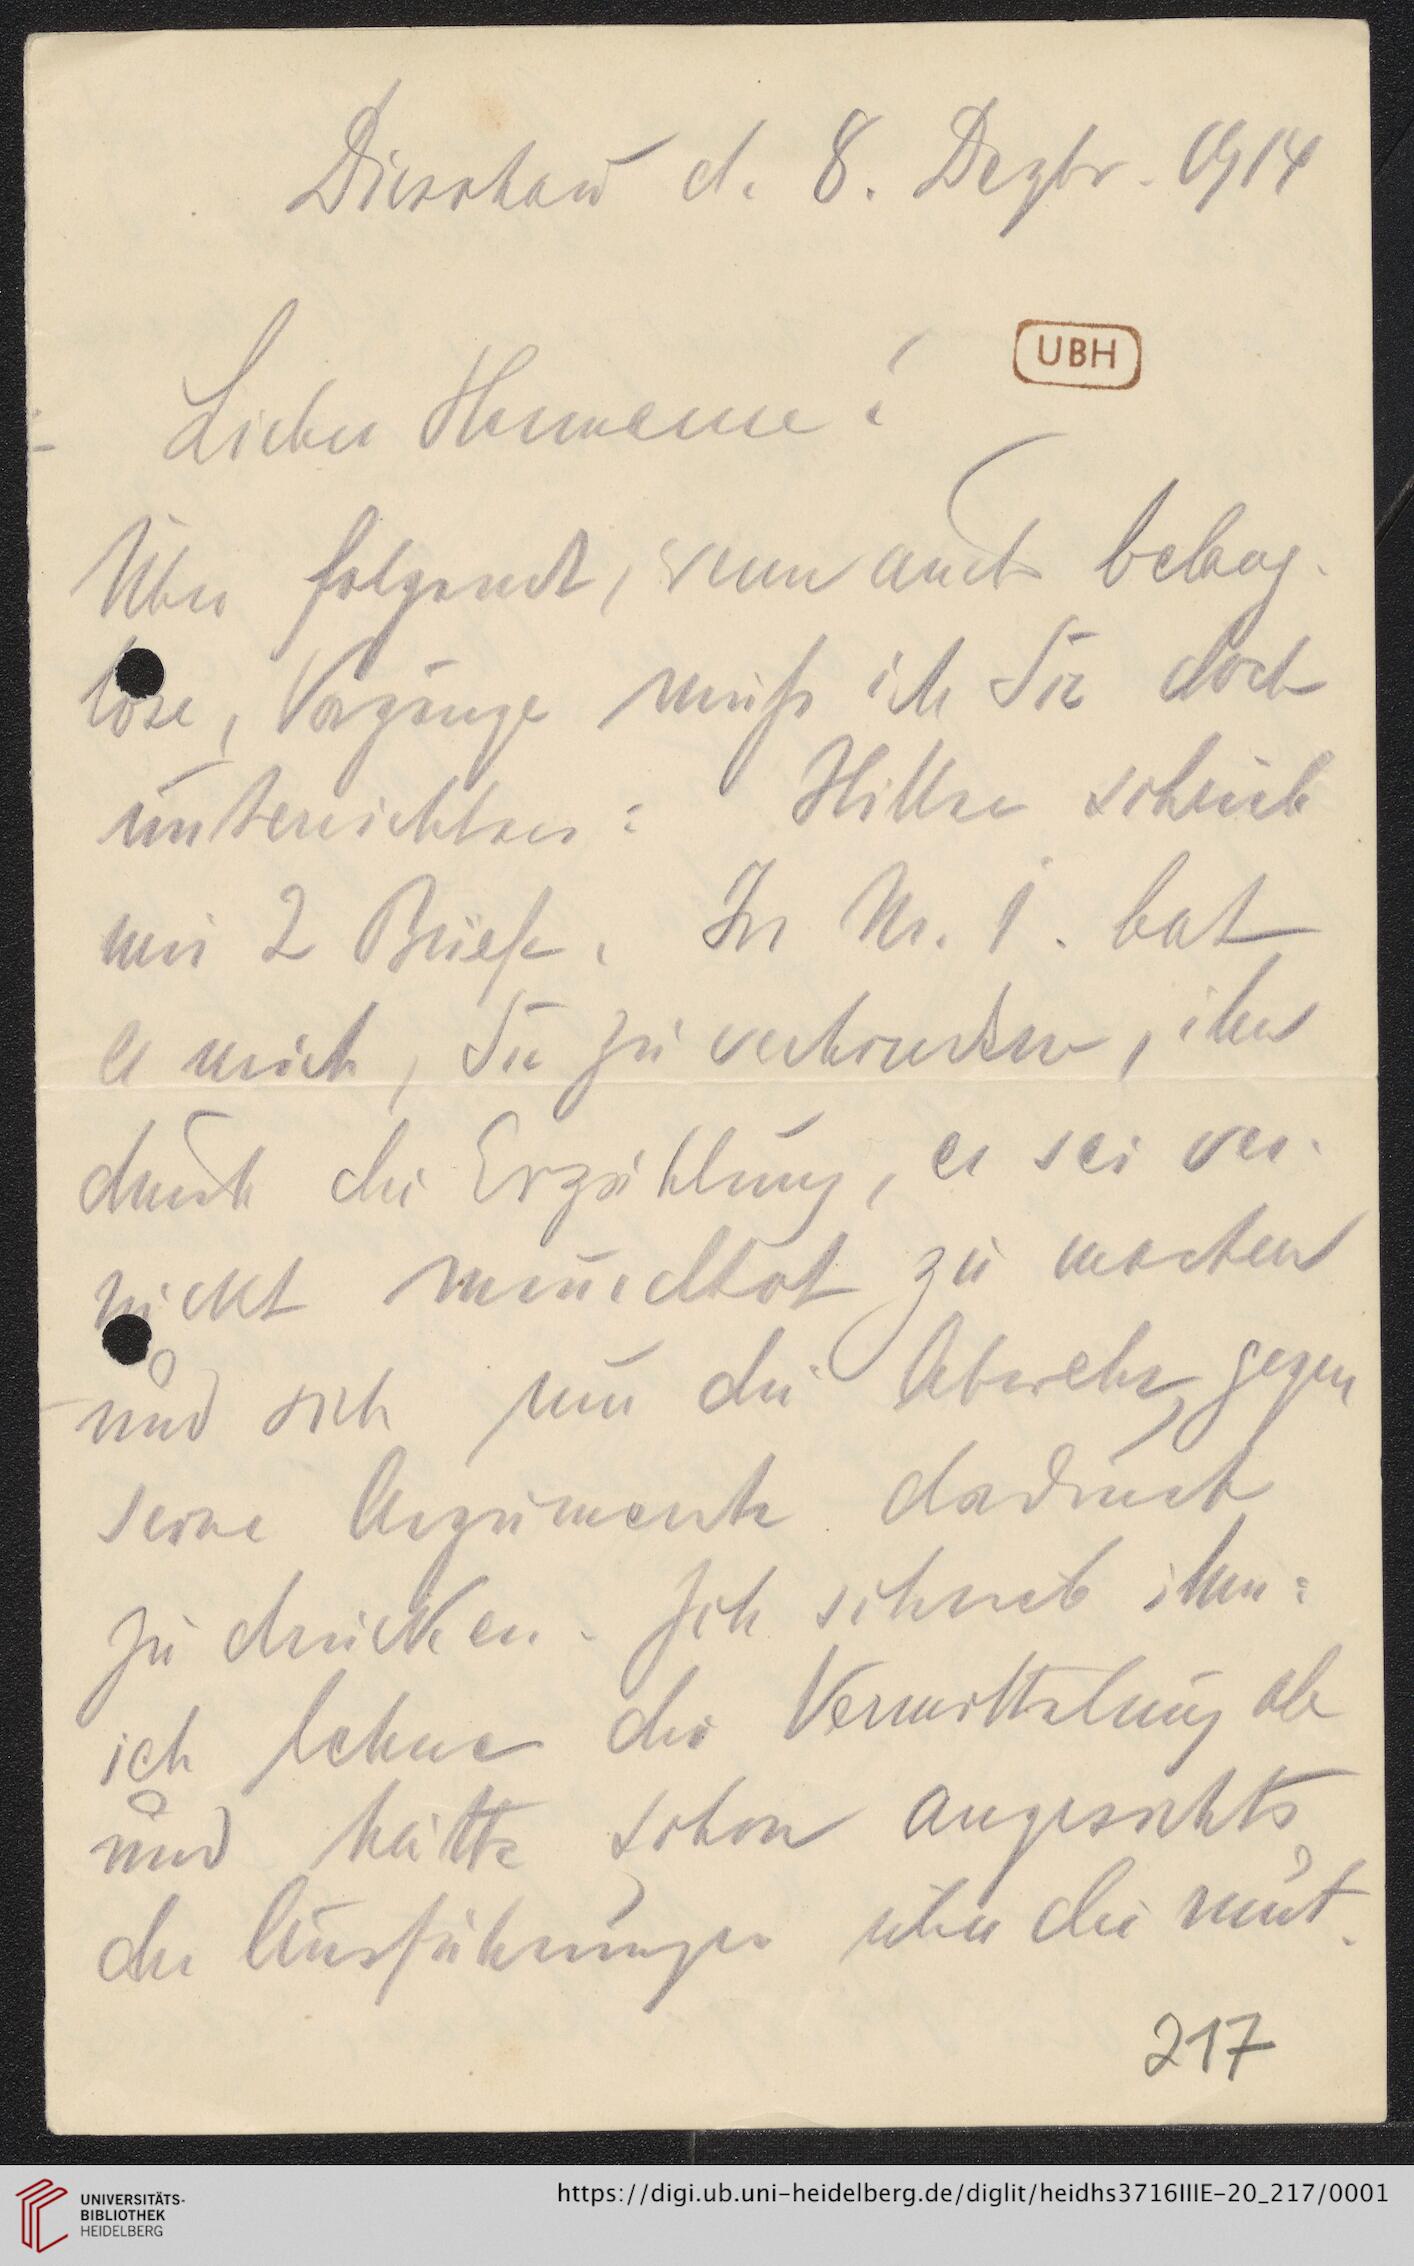 Dieskau d. 8. Dezbr. 1914
UBH
Lieber Hermann!
Über folgende, wenn auch belang-
lose, Vorgänge muß ich Sie doch
unterrichten: Hillse schrieb
mir 2 Briefe. In Nr. 1. bat
er mich, Sie zu verhindern, ihn
durch die Erzählung, er sei ver-
rückt mundtot zu machen
und sich um die Abwehr gegen
seine Argumente dadurch
zu drücken. Ich schrieb ihm:
ich lehne die Vermittelung ab
und hätte schon angesichts
der Ausführungen über die mut-
217
UNIVERSITÄTS-
BIBLIOTHEK
HEIDELBERG
https://digi.ub.uni-heidelberg.de/diglit/heidhs3716IIIE-20_217/0001